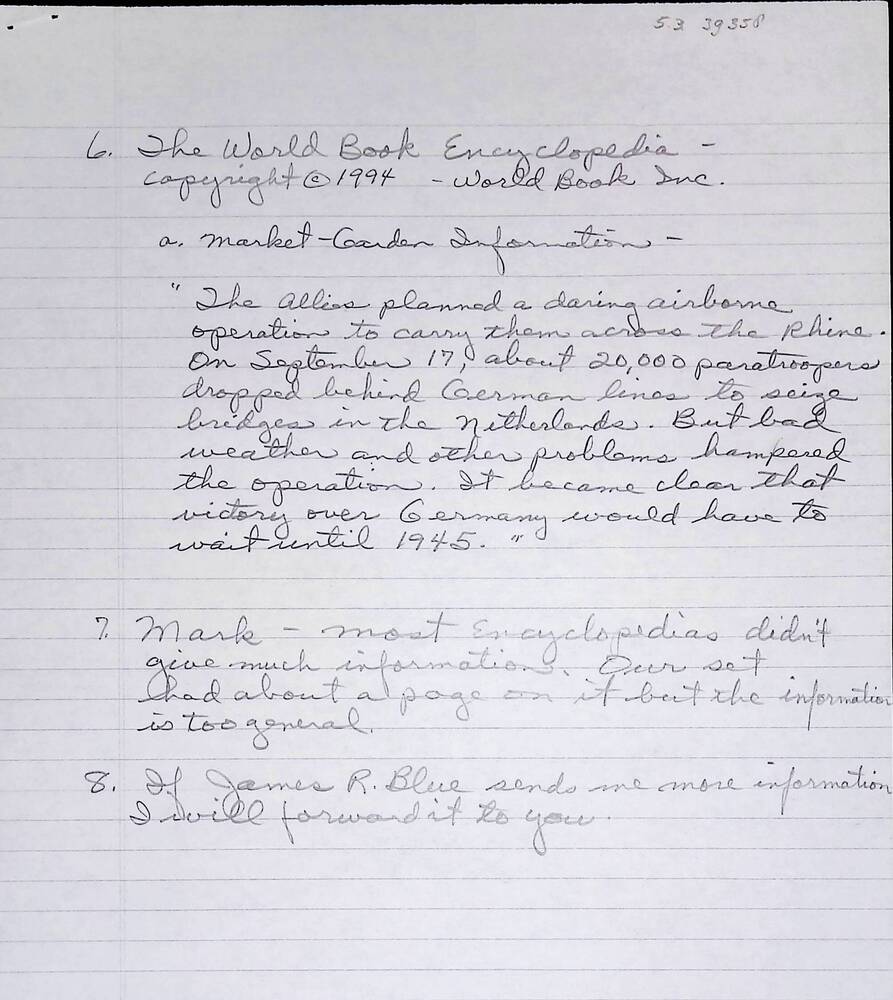 53 39358
6. The World Book Encyclopedia -
copyright © 1994 - World Book Inc.
a. Market-Garden Information -
" The Allies planned a daring airborne
operation to carry them across the Rhine.
On September 17, about 20,000 paratroopers
dropped behind German lines to seize
bridges in the Netherlands. But bad
weather and other problems hampered
the operation. It became clear that
victory over Germany would have to
wait until 1945. "
7. Mark - most Encyclopedias didn't
give much information. Our set
had about a page on it but the information
is too general.
8. If James R. Blue sends me more information
I will forward it to you.